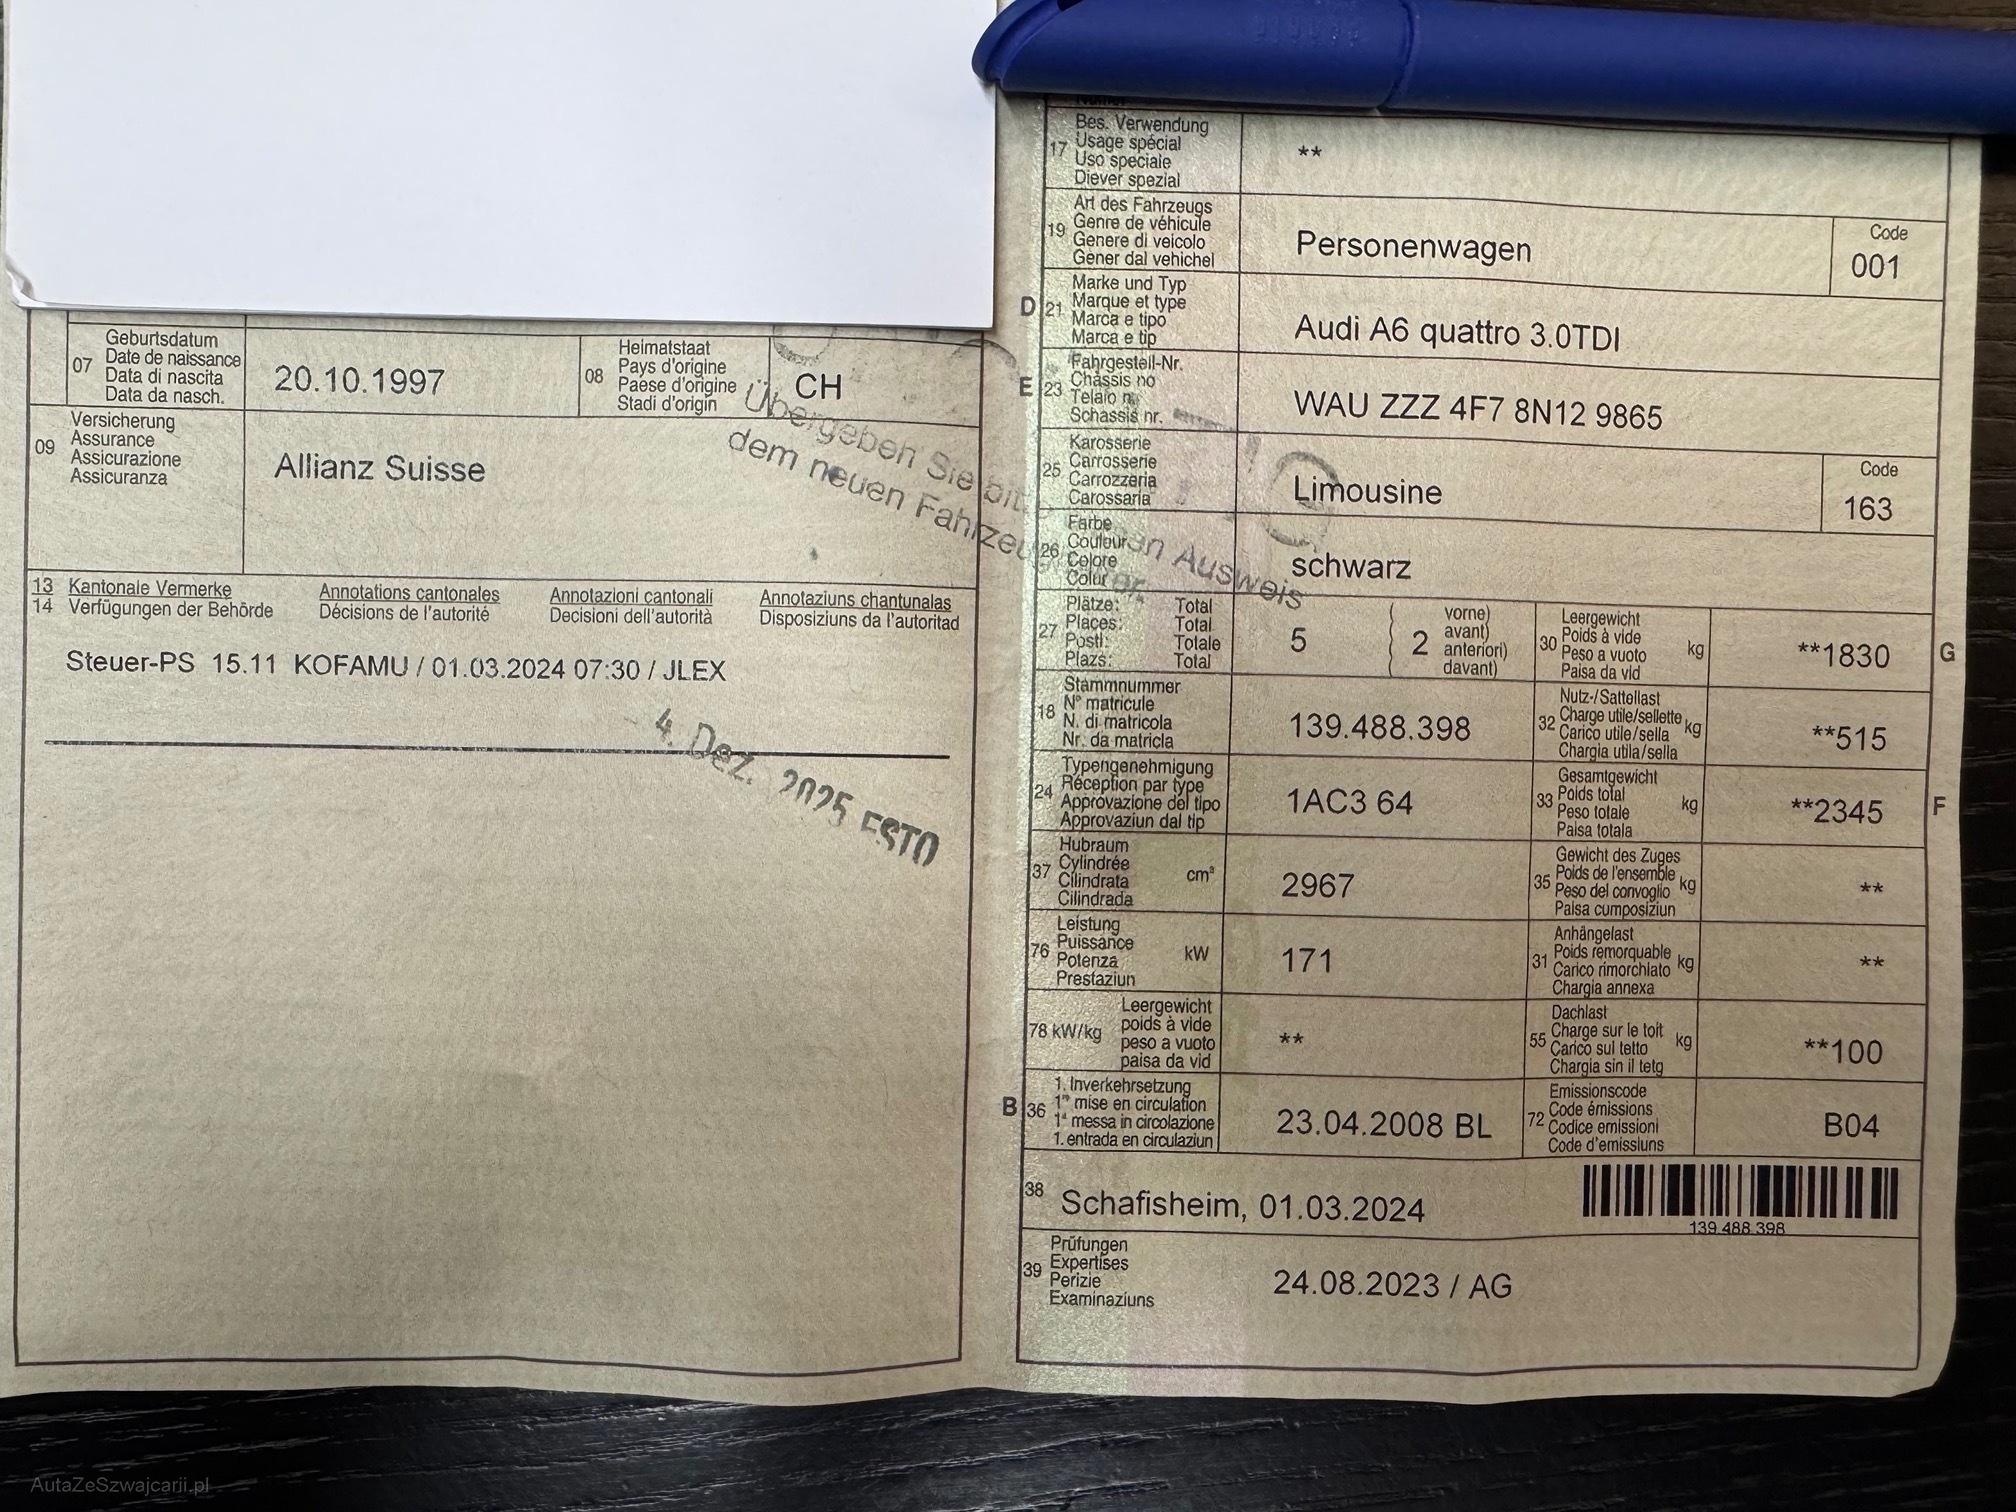 07
Geburtsdatum
Date de naissance
Data di nascita
Data da nasch.
20.10.1997
08
Heimatstaat
Pays d'origine
Paese d'origine
Stadi d'origin
CH
09
Versicherung
Assurance
Assicurazione
Assicuranza
Allianz Suisse
Übergeben Sie bit en Ausweis
dem neuen Fahrzeu
13 Kantonale Vermerke Annotations cantonales Annotazioni cantonali Annotaziuns chantunalas
14 Verfügungen der Behörde Décisions de l'autorité Decisioni dell'autorità Disposiziuns da l'autoritad
Steuer-PS 15.11 KOFAMU / 01.03.2024 07:30 / JLEX
4. Dez. 2025 ESTO
17
Bes. Verwendung
Usage spécial
Uso speciale
Diever spezial
**
19
Art des Fahrzeugs
Genre de véhicule
Genere di veicolo
Gener dal vehichel
Personenwagen
Code
001
D 21
Marke und Typ
Marque et type
Marca e tipo
Marca e tip
Audi A6 quattro 3.0TDI
E 23
Fahrgestell-Nr.
Châssis no
Telaio n.
Schassis nr.
WAU ZZZ 4F7 8N12 9865
25
Karosserie
Carrosserie
Carrozzeria
Carossaria
Limousine
Code
163
26
Farbe
Couleur
Colore
Colur
schwarz
27
Plätze: Total
Places: Total
Posti: Totale
Plazs: Total
5
( 2
vorne)
avant)
anteriori)
davant)
30
Leergewicht
Poids à vide
Peso a vuoto
Paisa da vid
kg
**1830
G
18
Stammnummer
N° matricule
N. di matricola
Nr. da matricla
139.488.398
32
Nutz-/Sattellast
Charge utile/sellette
Carico utile/sella
Chargia utila/sella
kg
**515
24
Typengenehmigung
Réception par type
Approvazione del tipo
Approvaziun dal tip
1AC3 64
33
Gesamtgewicht
Poids total
Peso totale
Paisa totala
kg
**2345
F
37
Hubraum
Cylindrée
Cilindrata
Cilindrada
cm³
2967
35
Gewicht des Zuges
Poids de l'ensemble
Peso del convoglio
Paisa cumposiziun
kg
**
76
Leistung
Puissance
Potenza
Prestaziun
kW
171
31
Anhängelast
Poids remorquable
Carico rimorchiato
Chargia annexa
kg
**
78 kW/kg
Leergewicht
poids à vide
peso a vuoto
paisa da vid
**
55
Dachlast
Charge sur le toit
Carico sul tetto
Chargia sin il tetg
kg
**100
B 36
1. Inverkehrsetzung
1re mise en circulation
1a messa in circolazione
1. entrada en circulaziun
23.04.2008 BL
72
Emissionscode
Code émissions
Codice emissioni
Code d'emissiuns
B04
38
Schafisheim, 01.03.2024
139.488.398
39
Prüfungen
Expertises
Perizie
Examinaziuns
24.08.2023 / AG
AutaZeSzwajcarii.pl